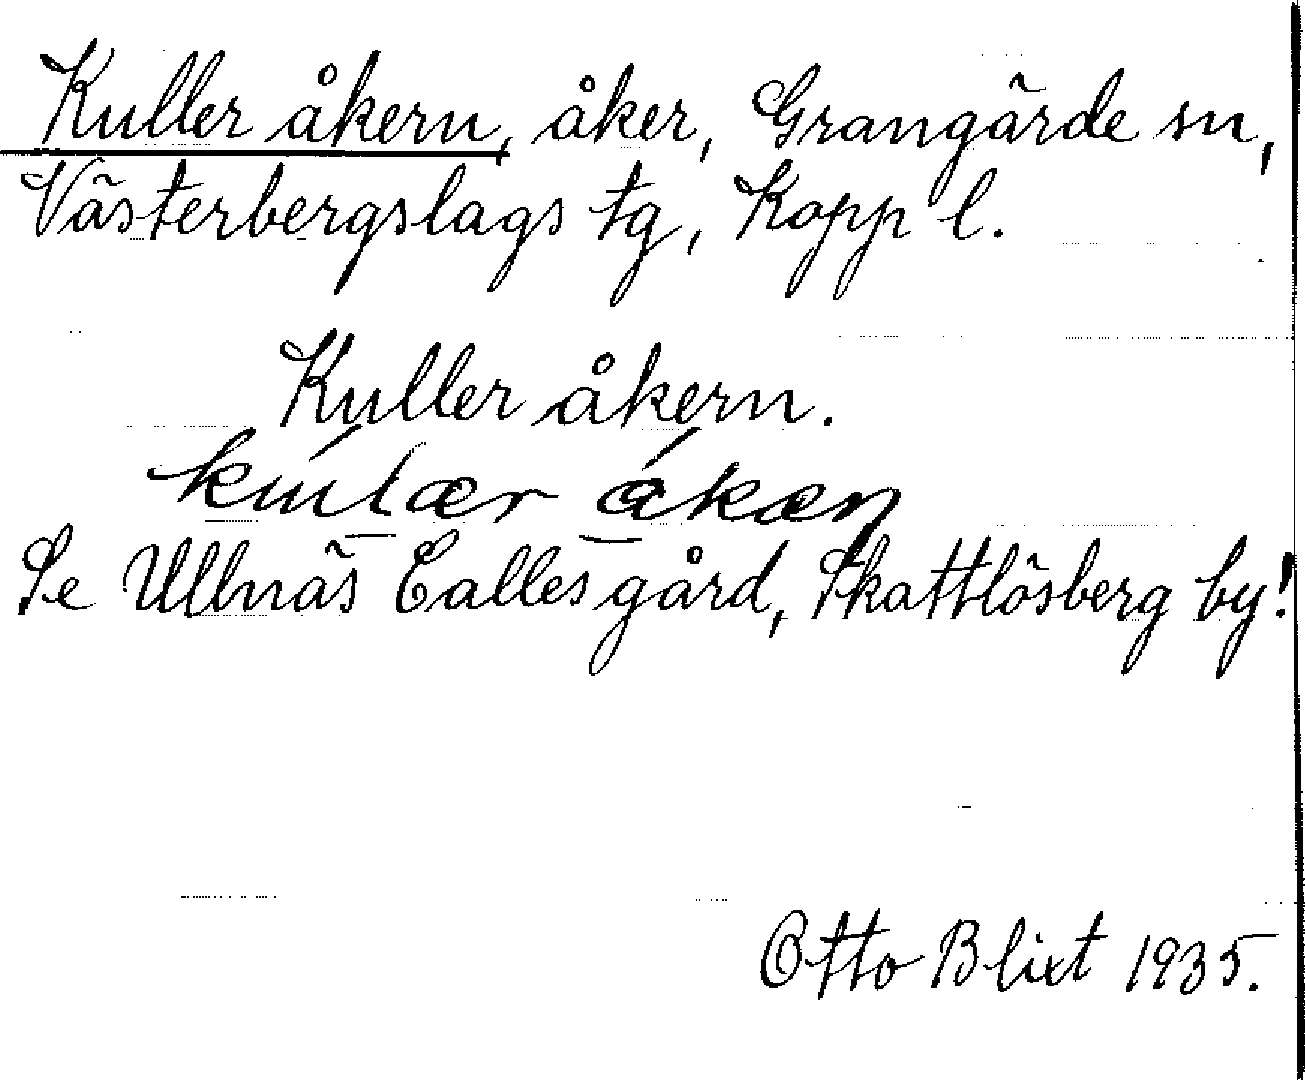 Kuller åkern, åker, Grangärde sn,
Västerbergslags tg, Kopp l.
Kuller åkern.
Se Ullnäs Calles gård, Skattlösberg by!
Otto Blixt 1935.